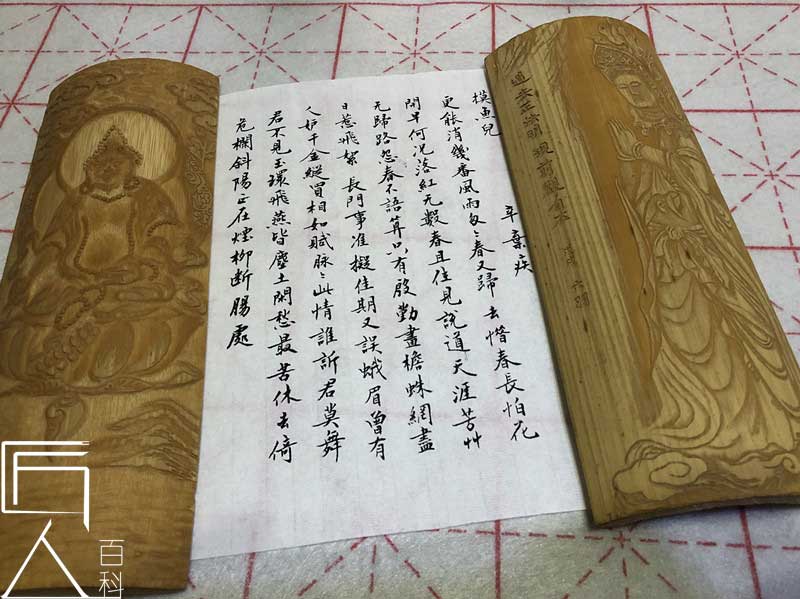 摸魚兒
辛棄疾
更能消幾番風雨匆〻春又歸去惜春長怕花
開早何況落紅无數春且住見說道天涯芳艸
无歸路怨春不語算只有殷勤畫檐蛛網盡
日惹飛絮 長門事准擬佳期又誤蛾眉曾有
人妒千金縱買相如賦脉〻此情誰訴君莫舞
君不見玉環飛燕皆塵土閑愁最苦休去倚
危欄斜陽正在煙柳断腸處
匠人
百科